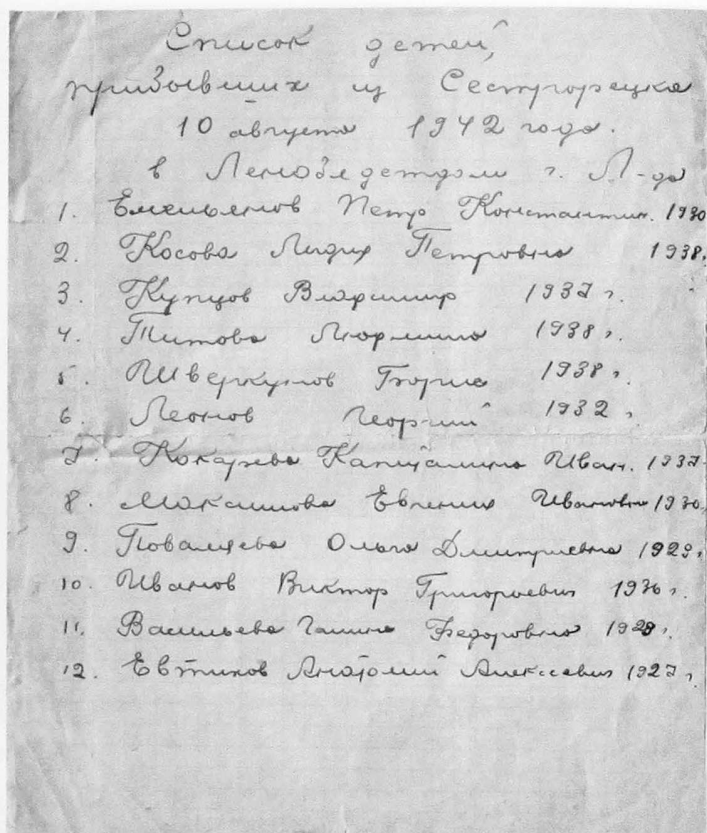 Список детей,
прибывших из Сестрорецка
10 августа 1942 года.
в Ленобл детдом г. Л-да
1. Емельянов Петр Константин. 1930
2. Косова Лидия Петровна 1938.
3. Купцов Владимир 1937 г.
4. Титова Людмила 1938 г.
5. Шверкунов Борис 1938 г.
6. Леонов Георгий 1932 г.
7. Кокарева Капиталина Иван. 1937
8. Максимова Евгения Ивановн 1930.
9. Поваляева Ольга Дмитриевна 1929 г.
10. Иванов Виктор Григорьевич г.
11. Васильева Галина Федоровна г.
12. Евтихов Анатолий Алексеевич 1927 г.